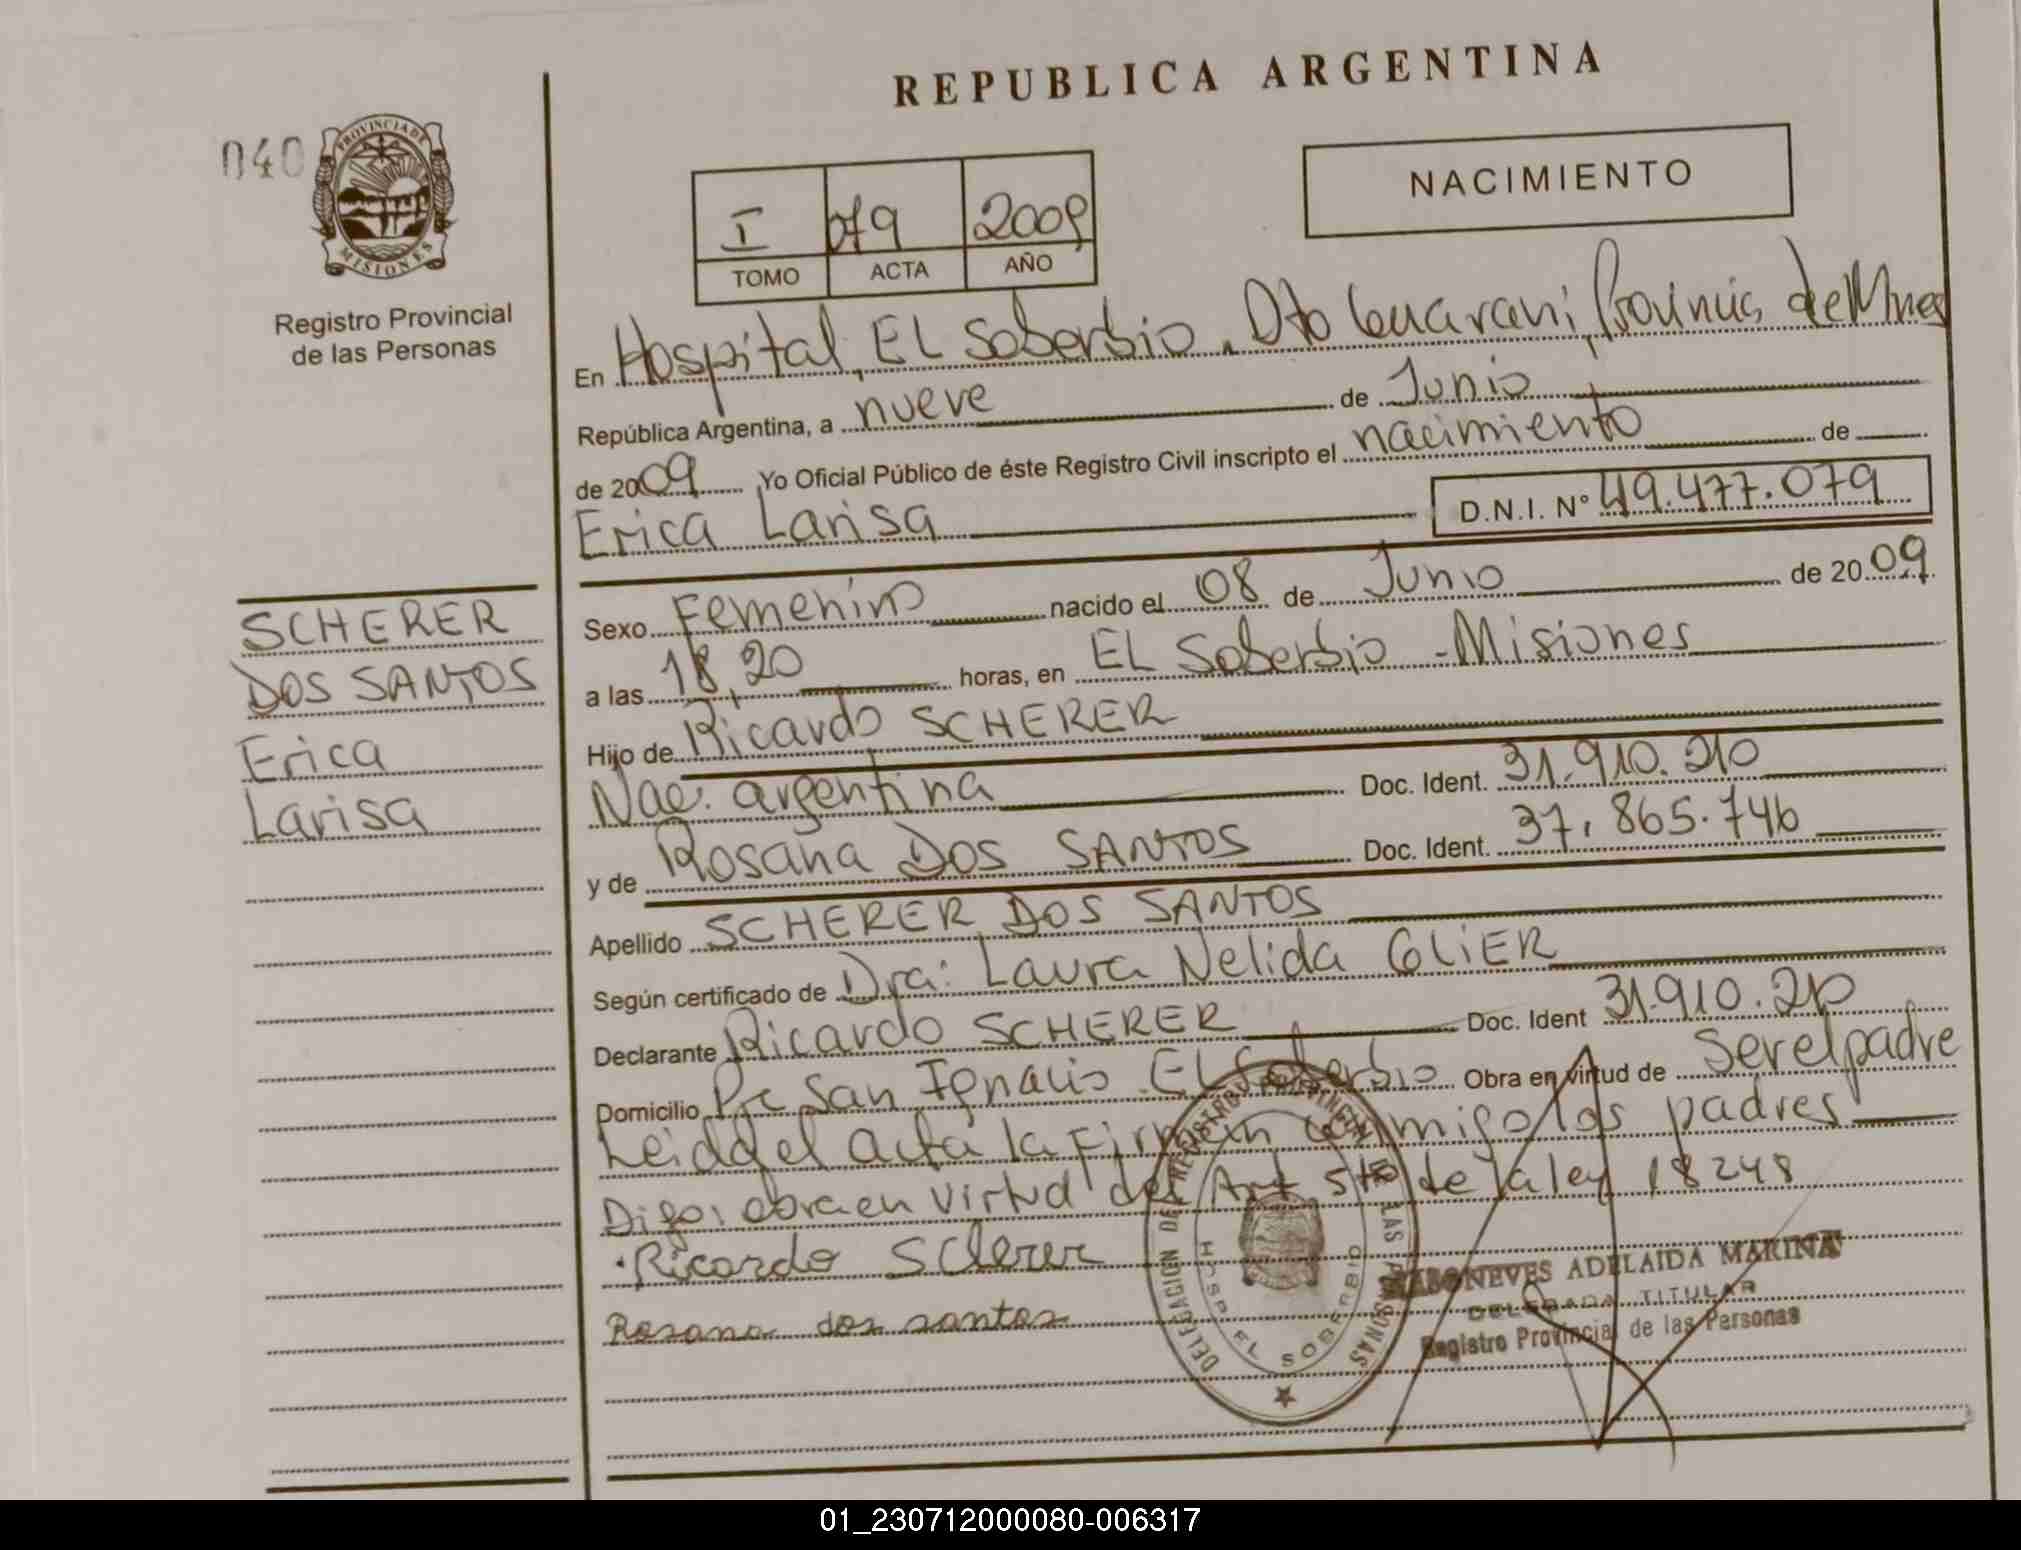 REPUBLICA ARGENTINA
040
PROVINCIA DE
MISIONES
Registro Provincial
de las Personas
I 079 2009
TOMO ACTA AÑO
NACIMIENTO
En Hospital, EL Soberbio. Dto Guarani, Provincia de Mnes
República Argentina, a nueve de Junio
de 2009 Yo Oficial Público de éste Registro Civil inscripto el nacimiento de
Erica Larisa D.N.I. N° 49.477.079
SCHERER
DOS SANTOS
Erica
Larisa
Sexo Femenino nacido el 08 de Junio de 2009
a las 18,20 horas, en EL Soberbio - Misiones
Hijo de Ricardo SCHERER
Nac. argentina Doc. Ident. 31.910.210
y de Rosana DOS SANTOS Doc. Ident. 37.865.746
Apellido SCHERER DOS SANTOS
Según certificado de Dra. Laura Nelida GLIER
Declarante Ricardo SCHERER Doc. Ident 31.910.210
Domicilio Pje San Ignacio EL Soberbio Obra en virtud de Ser el padre
Leida el acta la Firman conmigo los padres
Digo: obra en virtud del Art 5to de la ley 18248
Ricardo Scherer
Rosana dos santos
DELEGACION DEL REGISTRO PROVINCIAL DE LAS PERSONAS
HOSP. EL SOBERBIO
NEVES ADELAIDA MARINA
DELEGADA TITULAR
Registro Provincial de las Personas
01_230712000080-006317